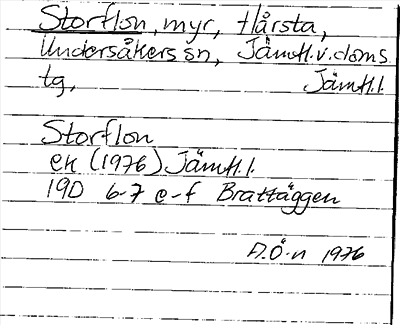 Storflon, myr, Hårsta,
Undersåkers sn, Jämtl.v.doms
tg, Jämtl.l.
Storflon
ek (1976) Jämtl.l.
19D 6-7 e-f Brattäggen
A.Ö-n 1976